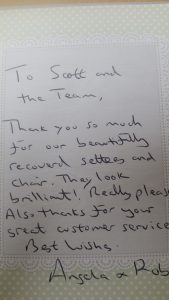 To Scott and
the Team,
Thank you so much
for our beautifully
recoverd settees and
chair. They look
brilliant! Really please
Also thanks for your
great customer service
Best Wishes.
Angela x Rob